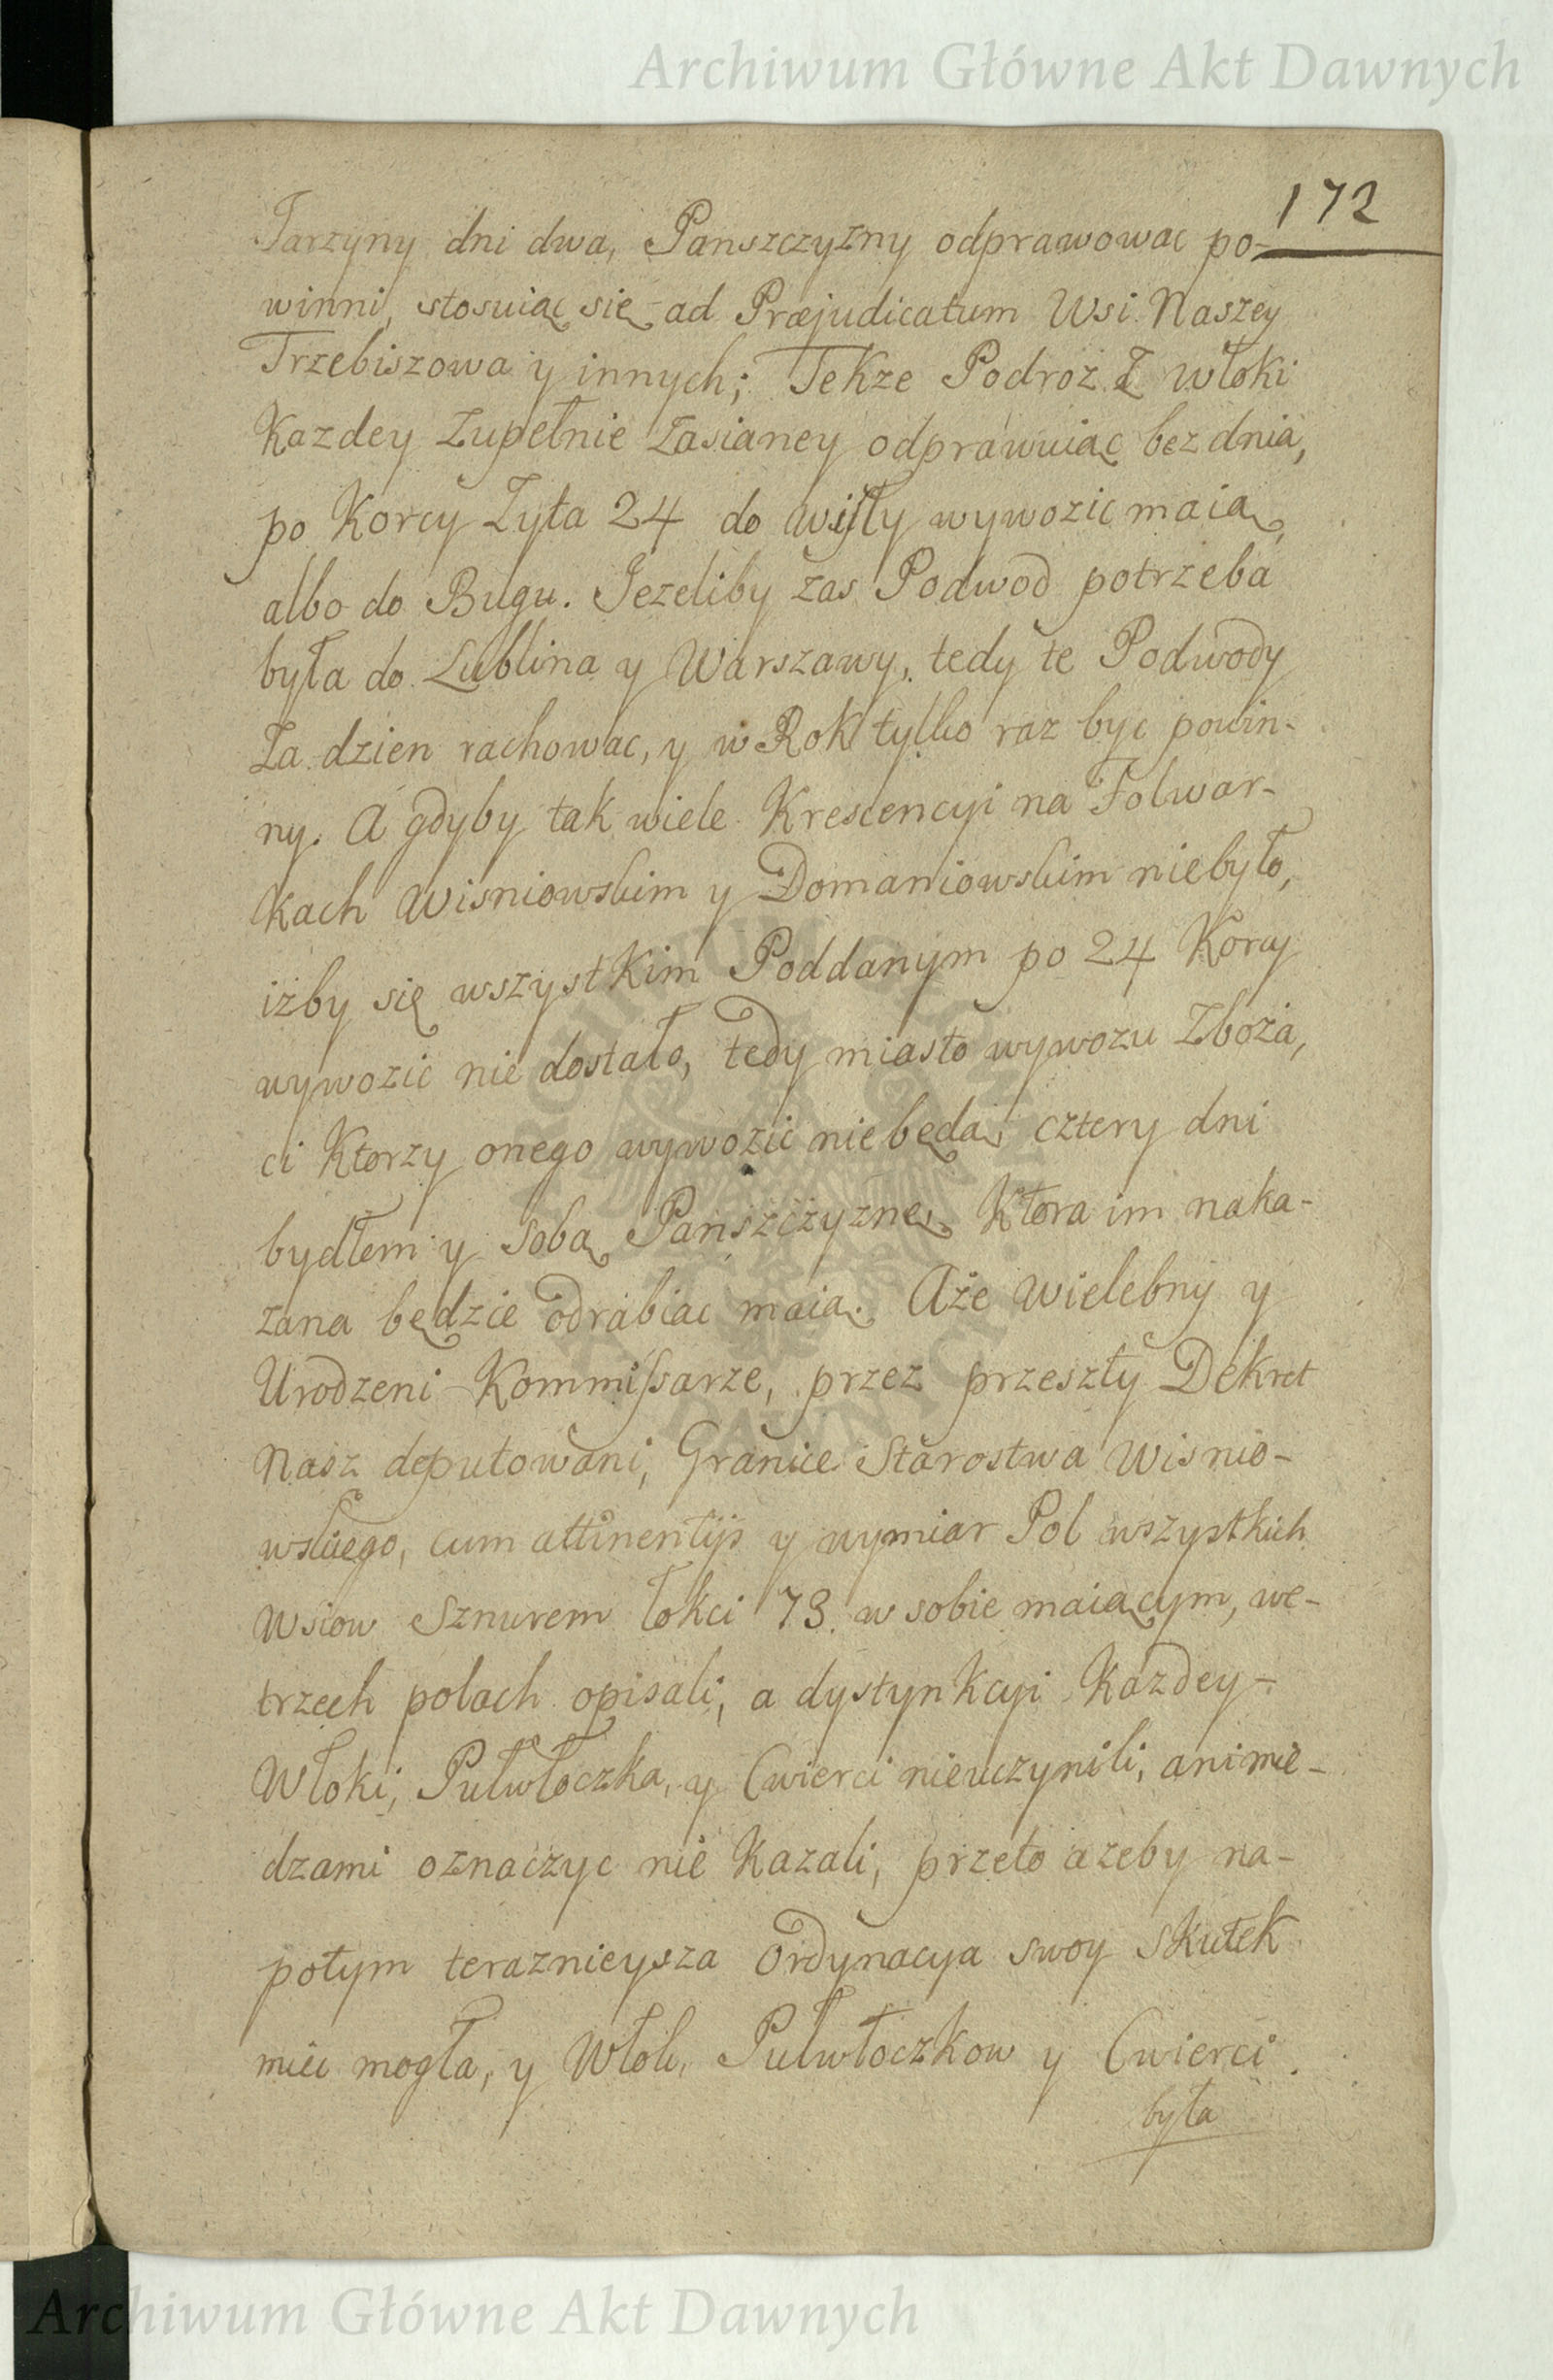 Archiwum Główne Akt Dawnych
172
Jarzyny dni dwa, Panszczyzny odprawowac po-
winni, stosuiąc się ad Præjudicatum Wsi Naszey
Trzebiszowa y innych; Tekze Podroz z włoki
Kazdey zupełnie zasianey odprawuiąc bez dnia,
po Korcy Zyta 24 do Wisły wywozic maią,
albo do Bugu. Jezeliby zas Podwod potrzeba
była do Lublina y Warszawy, tedy te Podwody
za dzien rachowac, y w Rok tylko raz byc powin-
ny. A gdyby tak wiele Krescencyi na Folwar-
kach Wisniowskim y Domaniowskim niebyło,
izby się wszystkim Poddanym po 24 Korcy
wywozić nie dostało, tedy miasto wywozu Zboża,
ci Ktorzy onego wywozić niebędą, cztery dni
bydłem y sobą Panszczyznę, Ktora im naka-
zana będzie odrabiac maią. Aże Wielebny y
Urodzeni Kommissarze, przez przeszły Dekret
Nasz deputowani, Granice Starostwa Wisnio-
wskiego, cum attinentijs y wymiar Pol wszystkich
Wsiow Sznurem łokci 73. w sobie maiącym, we-
trzech polach opisali, a dystynkcyi Kazdey-
Włoki, Pułwłoczka, y Cwierci nieuczynili, ani mie-
dzami oznaczyc nie Kazali, przeto azeby na-
potym teraznieysza Ordynacya swoy skutek
miec mogła, y Włok, Pułwłoczkow y Cwierci
była
Archiwum Główne Akt Dawnych